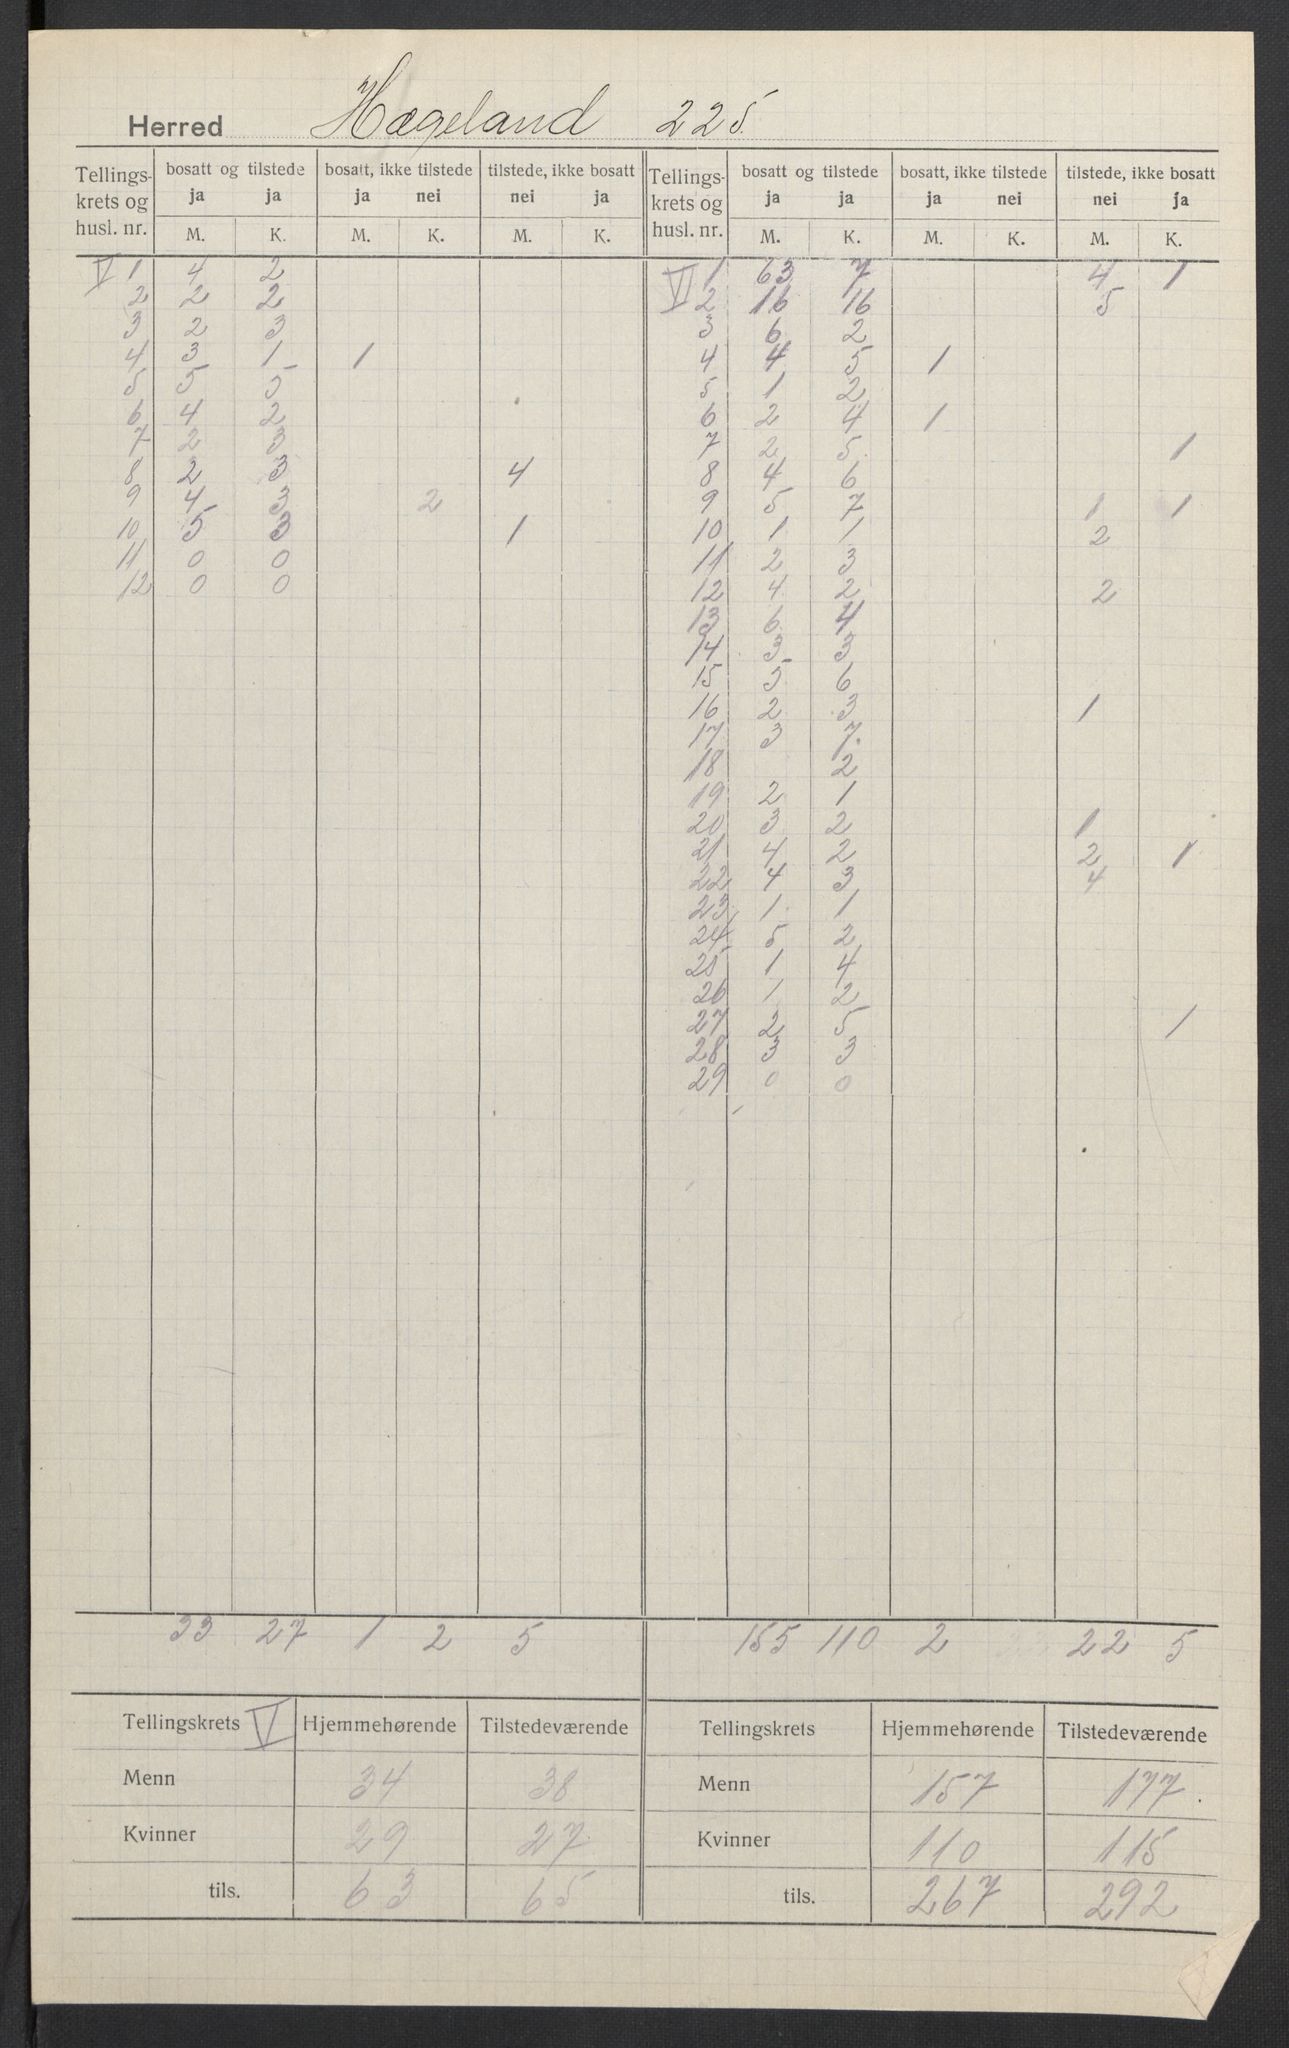 Herred Hægeland 225.
Tellings-krets og husl. nr. | bosatt og tilstede | bosatt, ikke tilstede | tilstede, ikke bosatt | Tellings-krets og husl. nr. | bosatt og tilstede | bosatt, ikke tilstede | tilstede, ikke bosatt
ja ja | ja nei | nei ja | ja ja | ja nei | nei ja
M. K. M. K. M. K. | M. K. M. K. M. K.
V 1 4 2
2 2 2
3 2 3
4 3 1 1
5 5 5
6 4 2
7 2 3
8 2 3 4
9 4 3 2
10 5 3 1
11 0 0
12 0 0
33 27 1 2 5
VI 1 63 7 4 1
2 16 16 5
3 6 2
4 4 5 1
5 1 2
6 2 4 1
7 2 5 1
8 4 6
9 5 7 1 1
10 1 1 2
11 2 3
12 4 2 2
13 6 4
14 3 3
15 5 6
16 2 3 1
17 3 7
18 2
19 2 1
20 3 2 1
21 4 2 2 1
22 4 3 4
23 1 1
24 5 2
25 1 4
26 1 2
27 2 5 1
28 3 3
29 0 0
155 110 2 22 5
Tellingskrets V | Hjemmehørende | Tilstedeværende
Menn 34 38
Kvinner 29 27
tils. 63 65
Tellingskrets | Hjemmehørende | Tilstedeværende
Menn 157 177
Kvinner 110 115
tils. 267 292